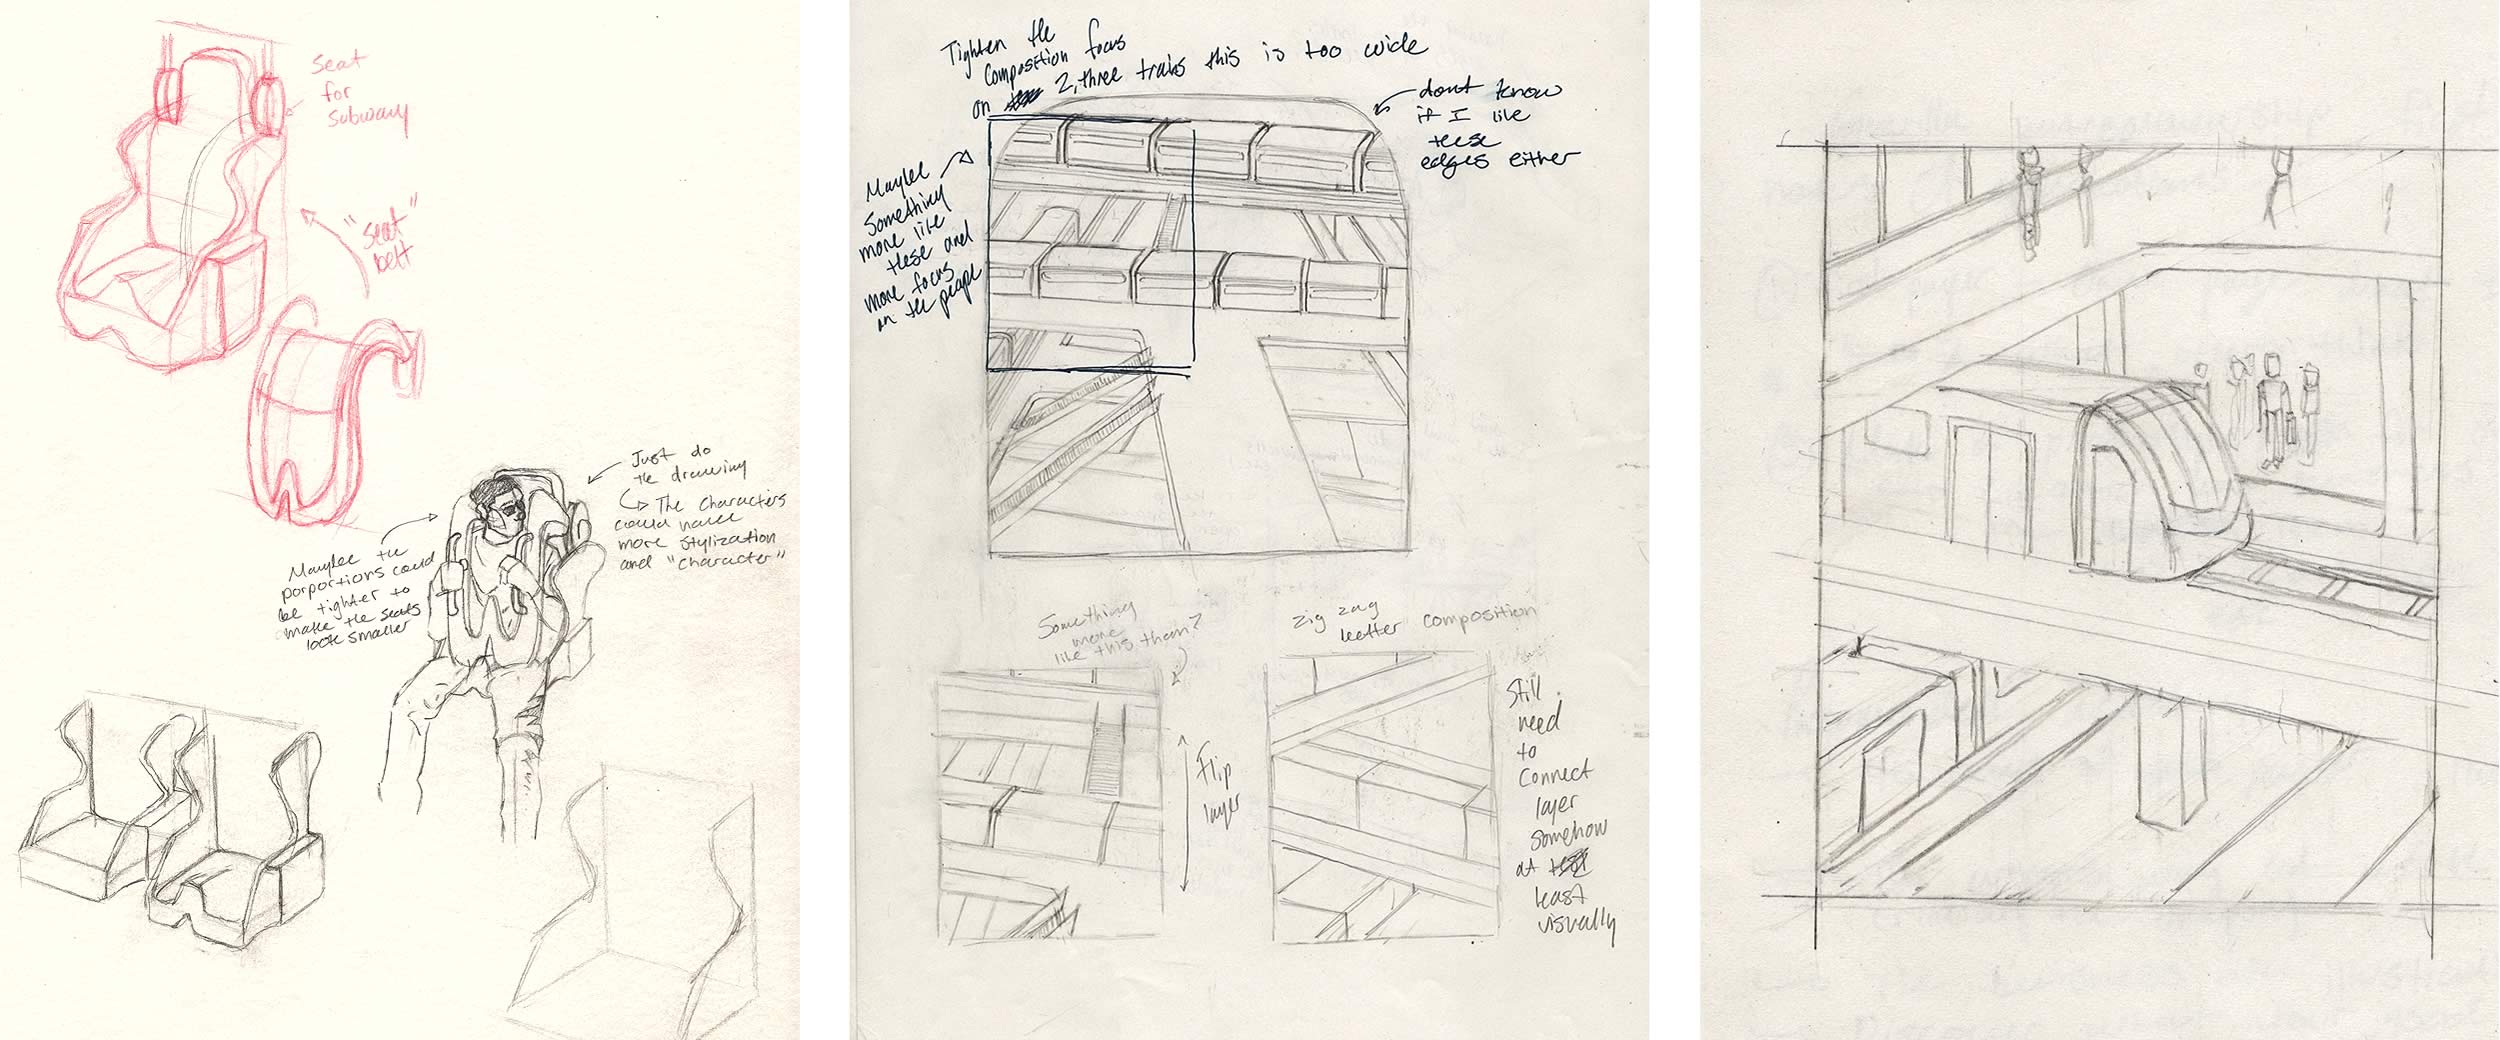 seat
for
subway
"seat"
belt
Just do
the drawing
The characters
could have
more stylization
and "character"
Maybee the
porportions could
be tighter to
make the seats
look smaller
Tighten the
composition focus
on 2, three trains this is too wide
dont know
if I like
these
edges either
Maybee
Something
more like
these and
more focus
on the people
Something
more
like this then?
Flip
layer
zig zag
better composition
Still
need
to
connect
layer
somehow
at
least
visually